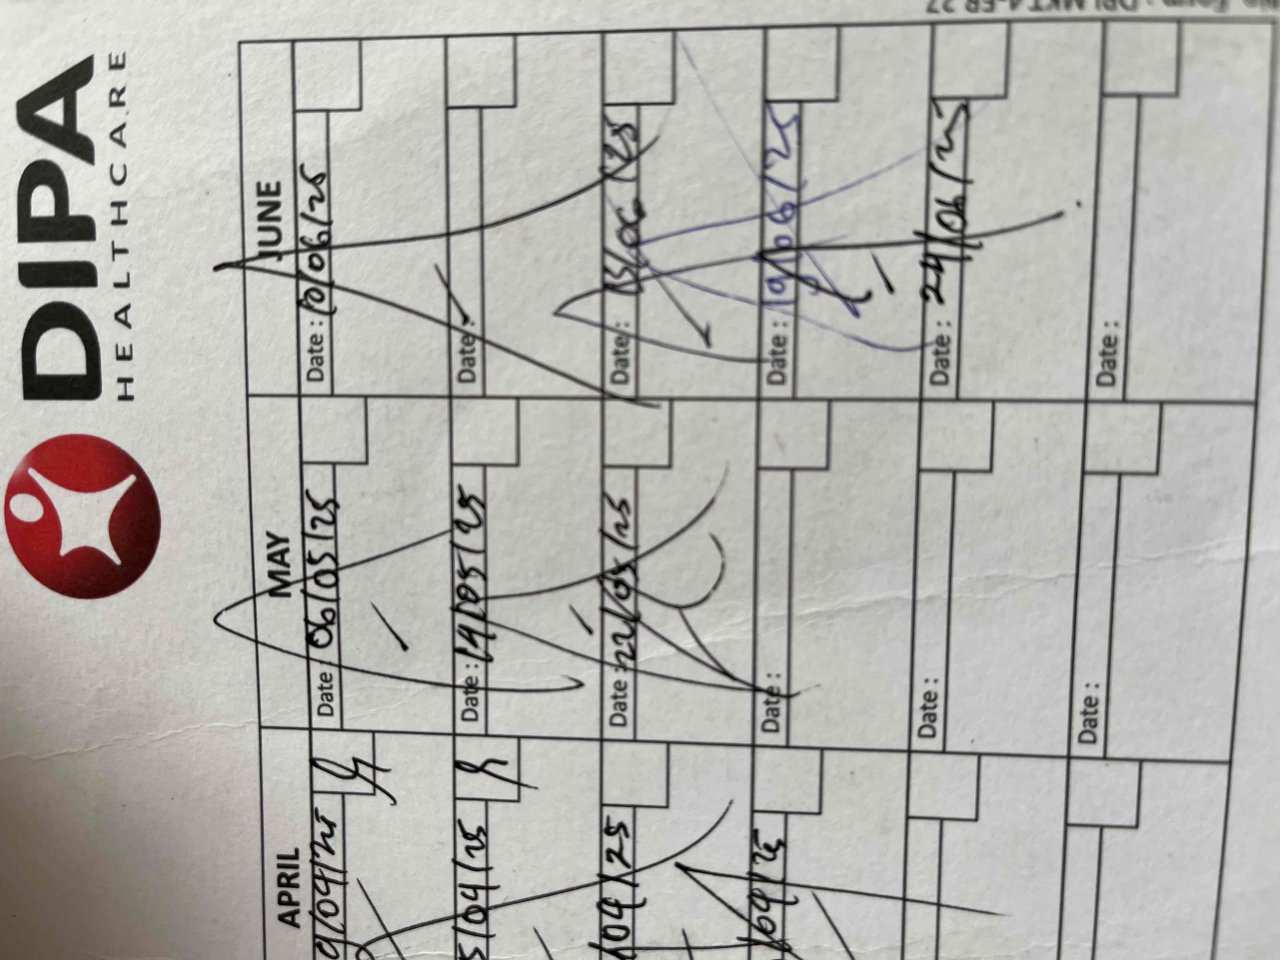 DIPA
HEALTHCARE
APRIL
/04/25
5/04/25
/04/25
/04/25
MAY
Date : 06/05/25
Date : 14/05/25
Date : 22/05/25
Date :
Date :
Date :
JUNE
Date : 10/06/25
Date :
Date : 15/06/25
Date : 19/06/25
Date : 24/06/25
Date :